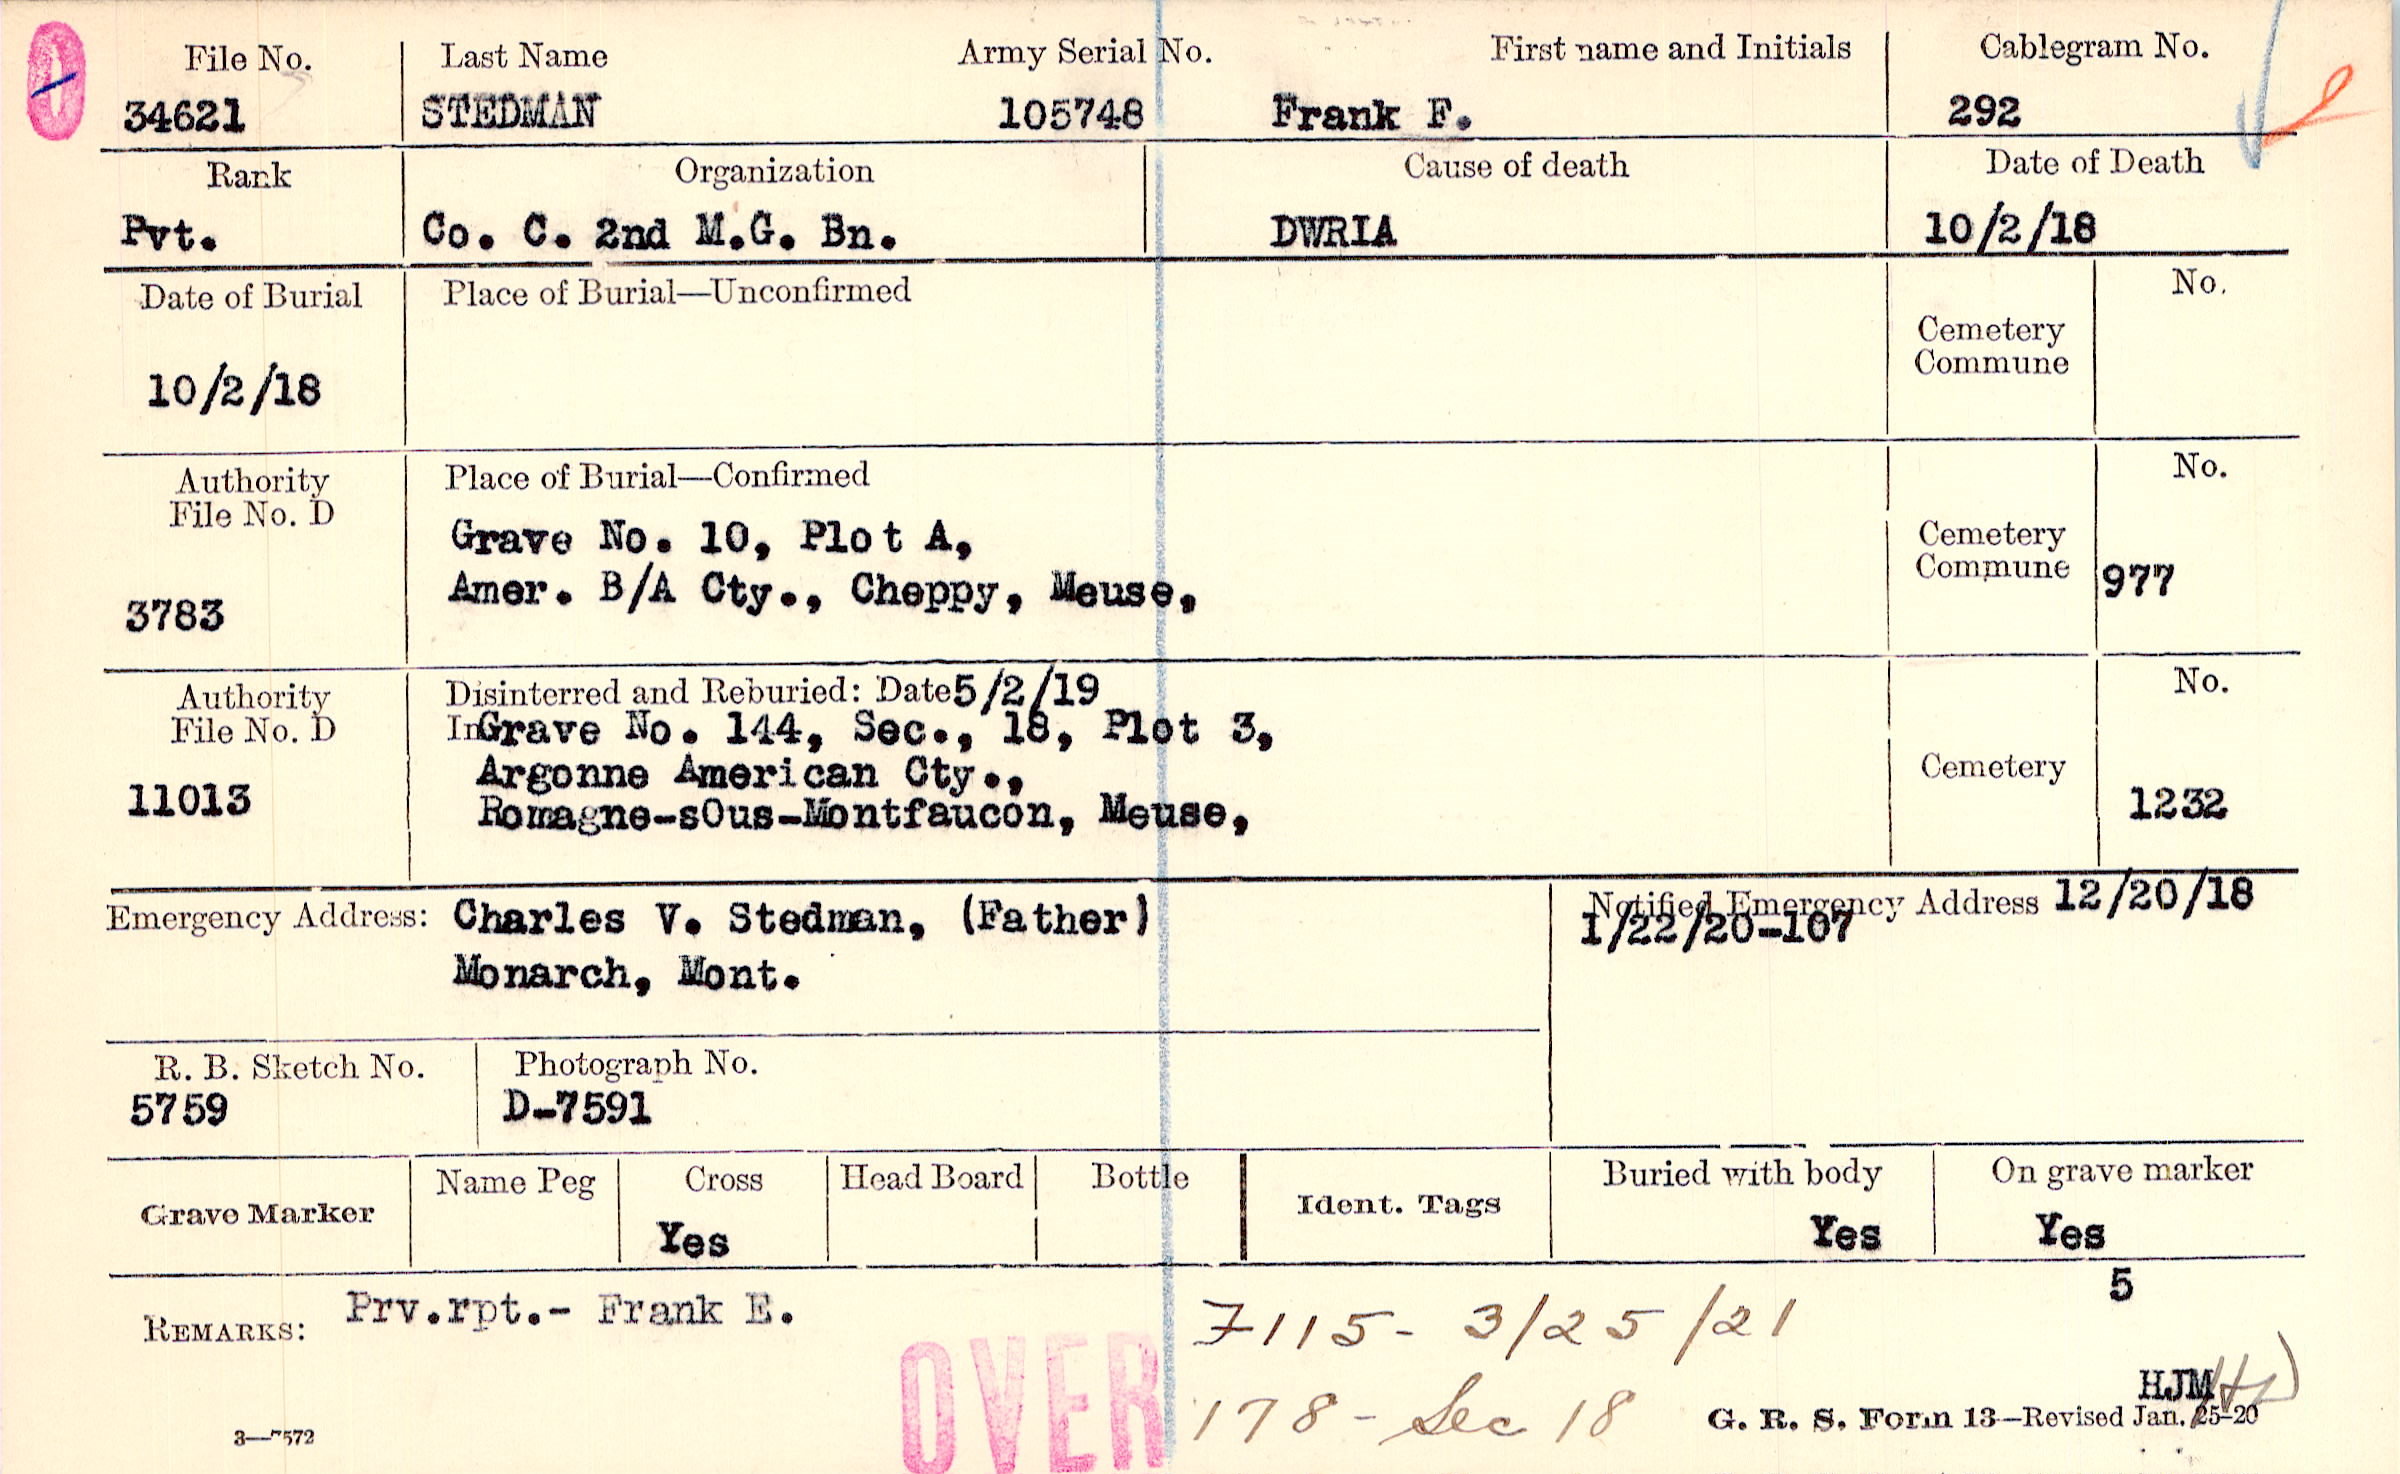 File No. Last Name Army Serial No. First name and Initials Cablegram No.
34621 STEDMAN 105748 Frank F. 292
Rank Organization Cause of death Date of Death
Pvt. Co. C. 2nd M.G. Bn. DWRIA 10/2/18
Date of Burial Place of Burial—Unconfirmed No.
Cemetery
Commune
10/2/18
Authority Place of Burial—Confirmed No.
File No. D
Grave No. 10, Plot A, Cemetery
Amer. B/A Cty., Cheppy, Meuse, Commune 977
3783
Authority Disinterred and Reburied: Date 5/2/19 No.
File No. D In Grave No. 144, Sec., 18, Plot 3,
Argonne American Cty., Cemetery
11013 Romagne-sOus-Montfaucon, Meuse, 1232
Emergency Address: Charles V. Stedman, (Father) Notified Emergency Address 12/20/18
1/22/20-107
Monarch, Mont.
R. B. Sketch No. Photograph No.
5759 D-7591
Grave Marker Name Peg Cross Head Board Bottle Ident. Tags Buried with body On grave marker
Yes Yes Yes
5
REMARKS: Prv.rpt.- Frank E. 7115- 3/25/21
OVER 178 - Sec 18 HJM
3—7572 G. R. S. Form 13—Revised Jan. 25-20